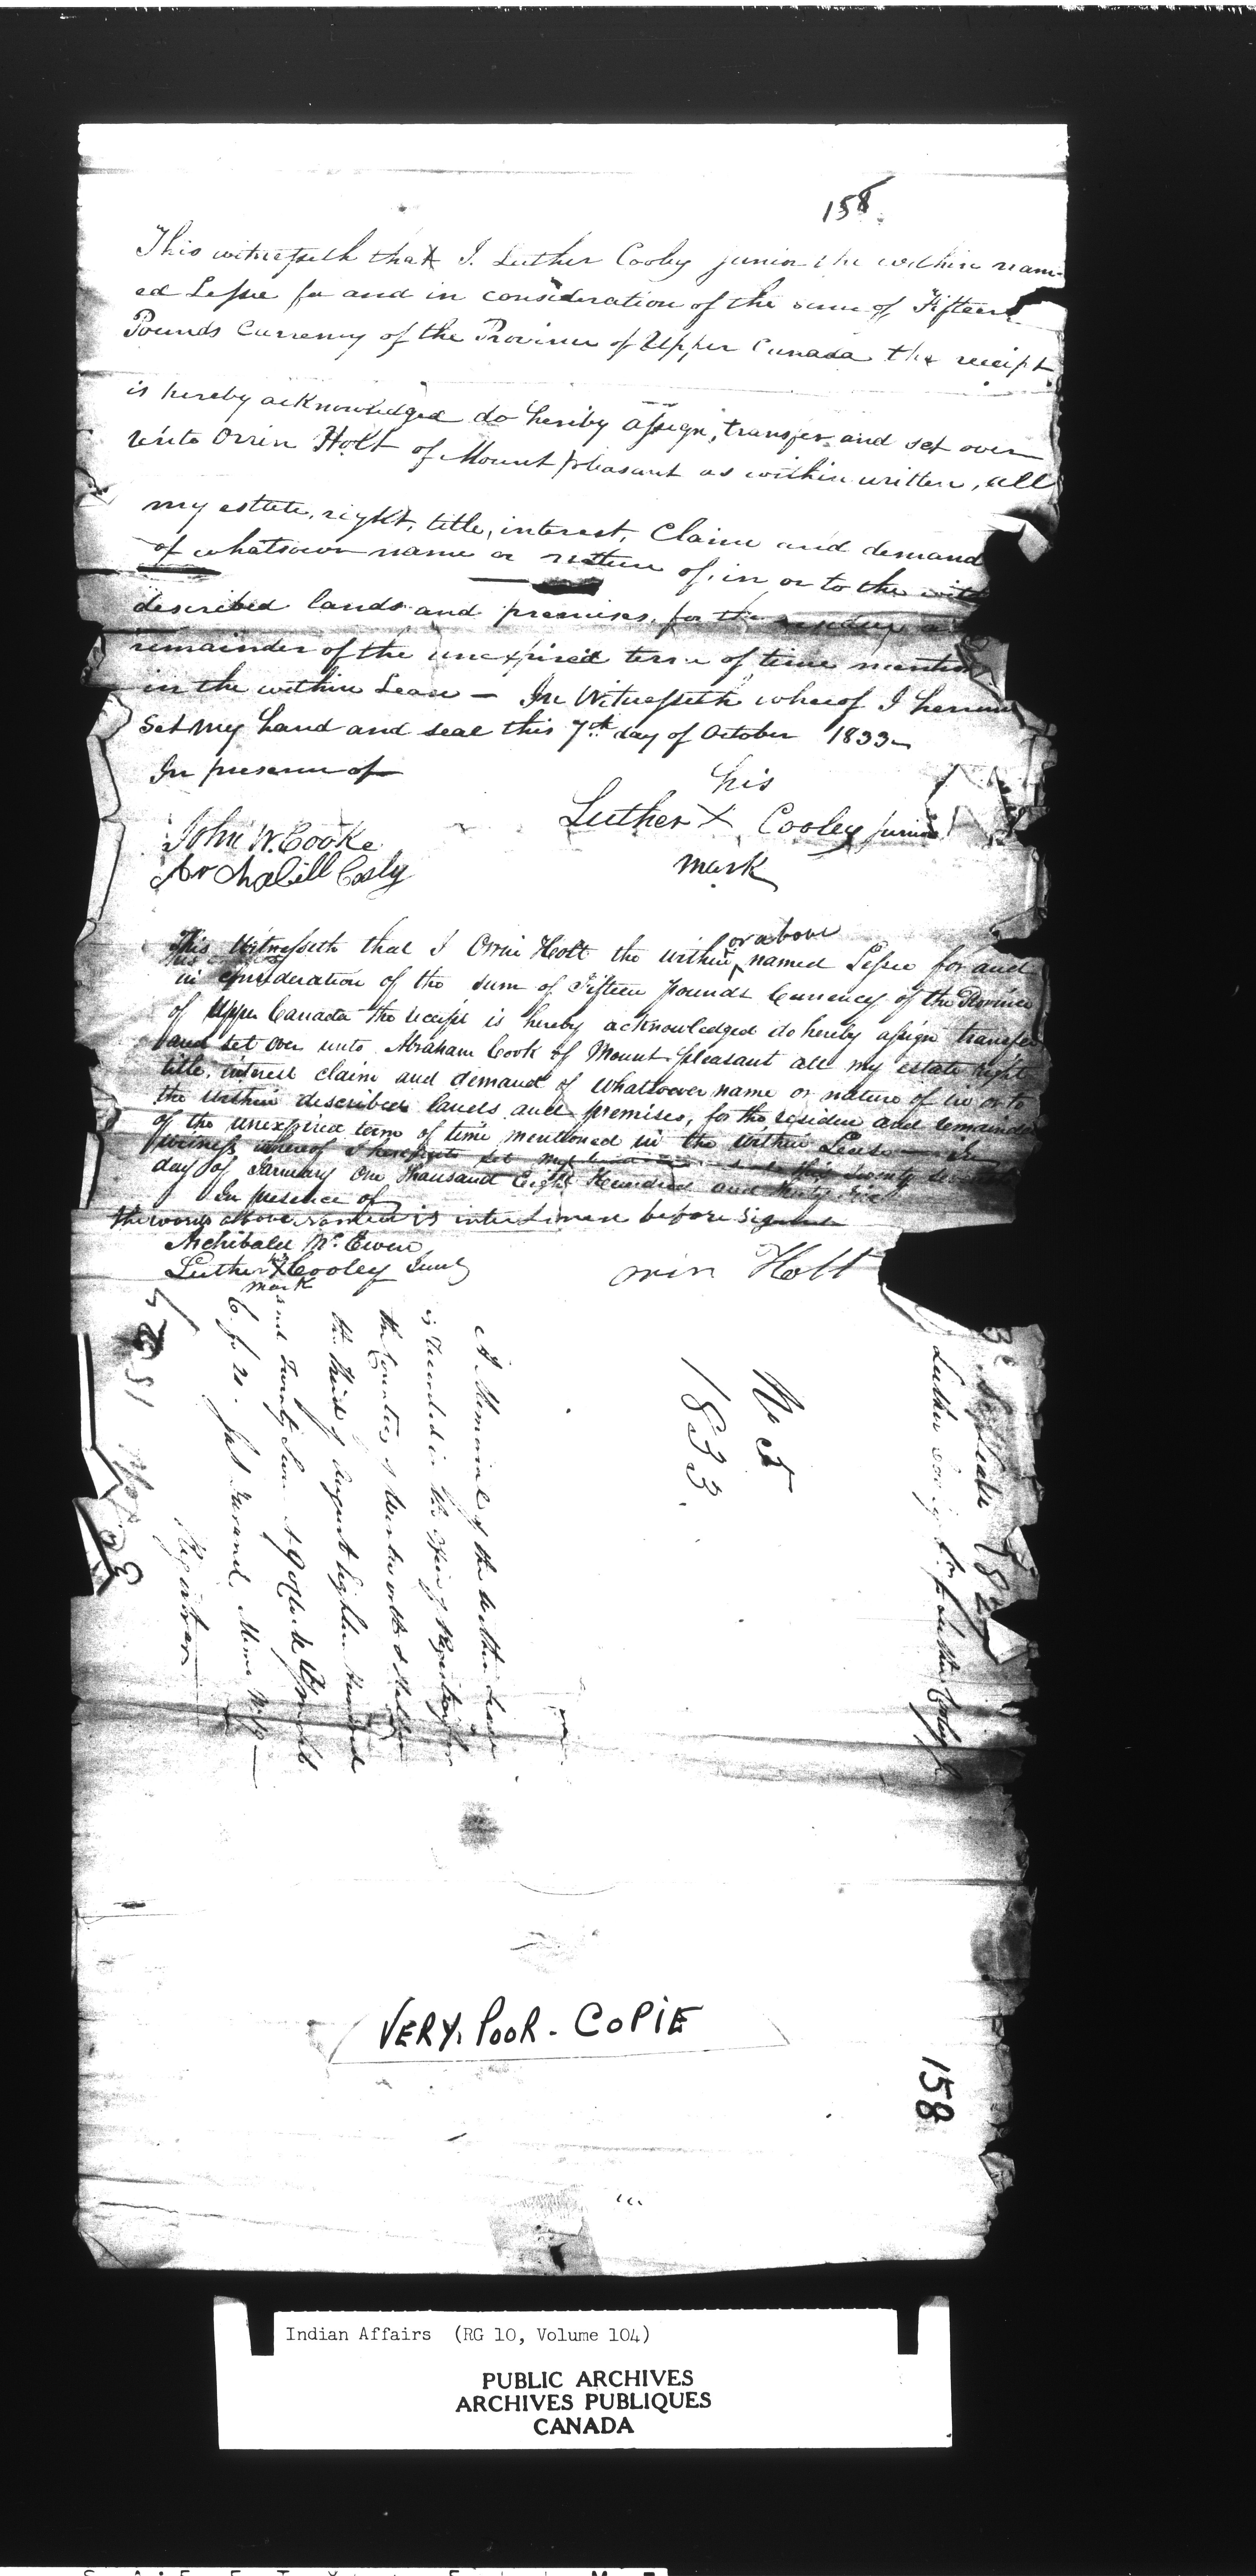 158
This witnesseth that I. Luther Cooley junior the within nam-
ed Lessee for and in consideration of the sum of Fifteen
Pounds Currency of the Province of Upper Canada the receipt
is hereby acknowledged do hereby assign, transfer and set over
unto Orrin Holt of Mount pleasant as within written, all
my estate, right, title, interest, Claim and demand
of whatsoever name or nature of, in or to the with
described lands and premises, for the residue a
remainder of the unexpired term of time mention
in the within Lease — In Witnesseth whereof I hereun
Set my hand and seal this 7th day of October 1833
In presence of
his
Luther X Cooley junior
mark
John W. Cooke
This Witnesseth that I Orrin Holt the within or above named Lessee for and
in consideration of the sum of Fifteen pounds Currency of the Province
of Upper Canada the receipt is hereby acknowledged do hereby assign transfer
and set over unto Abraham Cook of Mount pleasant all my estate right
title, interest claim and demand of whatsoever name or nature of in or to
the within described lands and premises, for the residue and remainder
of the unexpired term of time mentioned in the within Lease — In
witness whereof I hereunto set my this twenty
day of January One Thousand Eight Hundred and thirty
In presence of
the words above is interlined before signed
Archibald McEwen
Luther X Cooley Junr
mark
rrin Holt
A Memorial of the within Lease
is Recorded in the office of Registry for
the Counties of
the third of August Eighteen Hundred
and Twenty Seven at 9 o'Clock
Register
No 5
1833
Luther Cooley
VERY. POOR. COPIE
158
Indian Affairs (RG 10, Volume 104)
PUBLIC ARCHIVES
ARCHIVES PUBLIQUES
CANADA